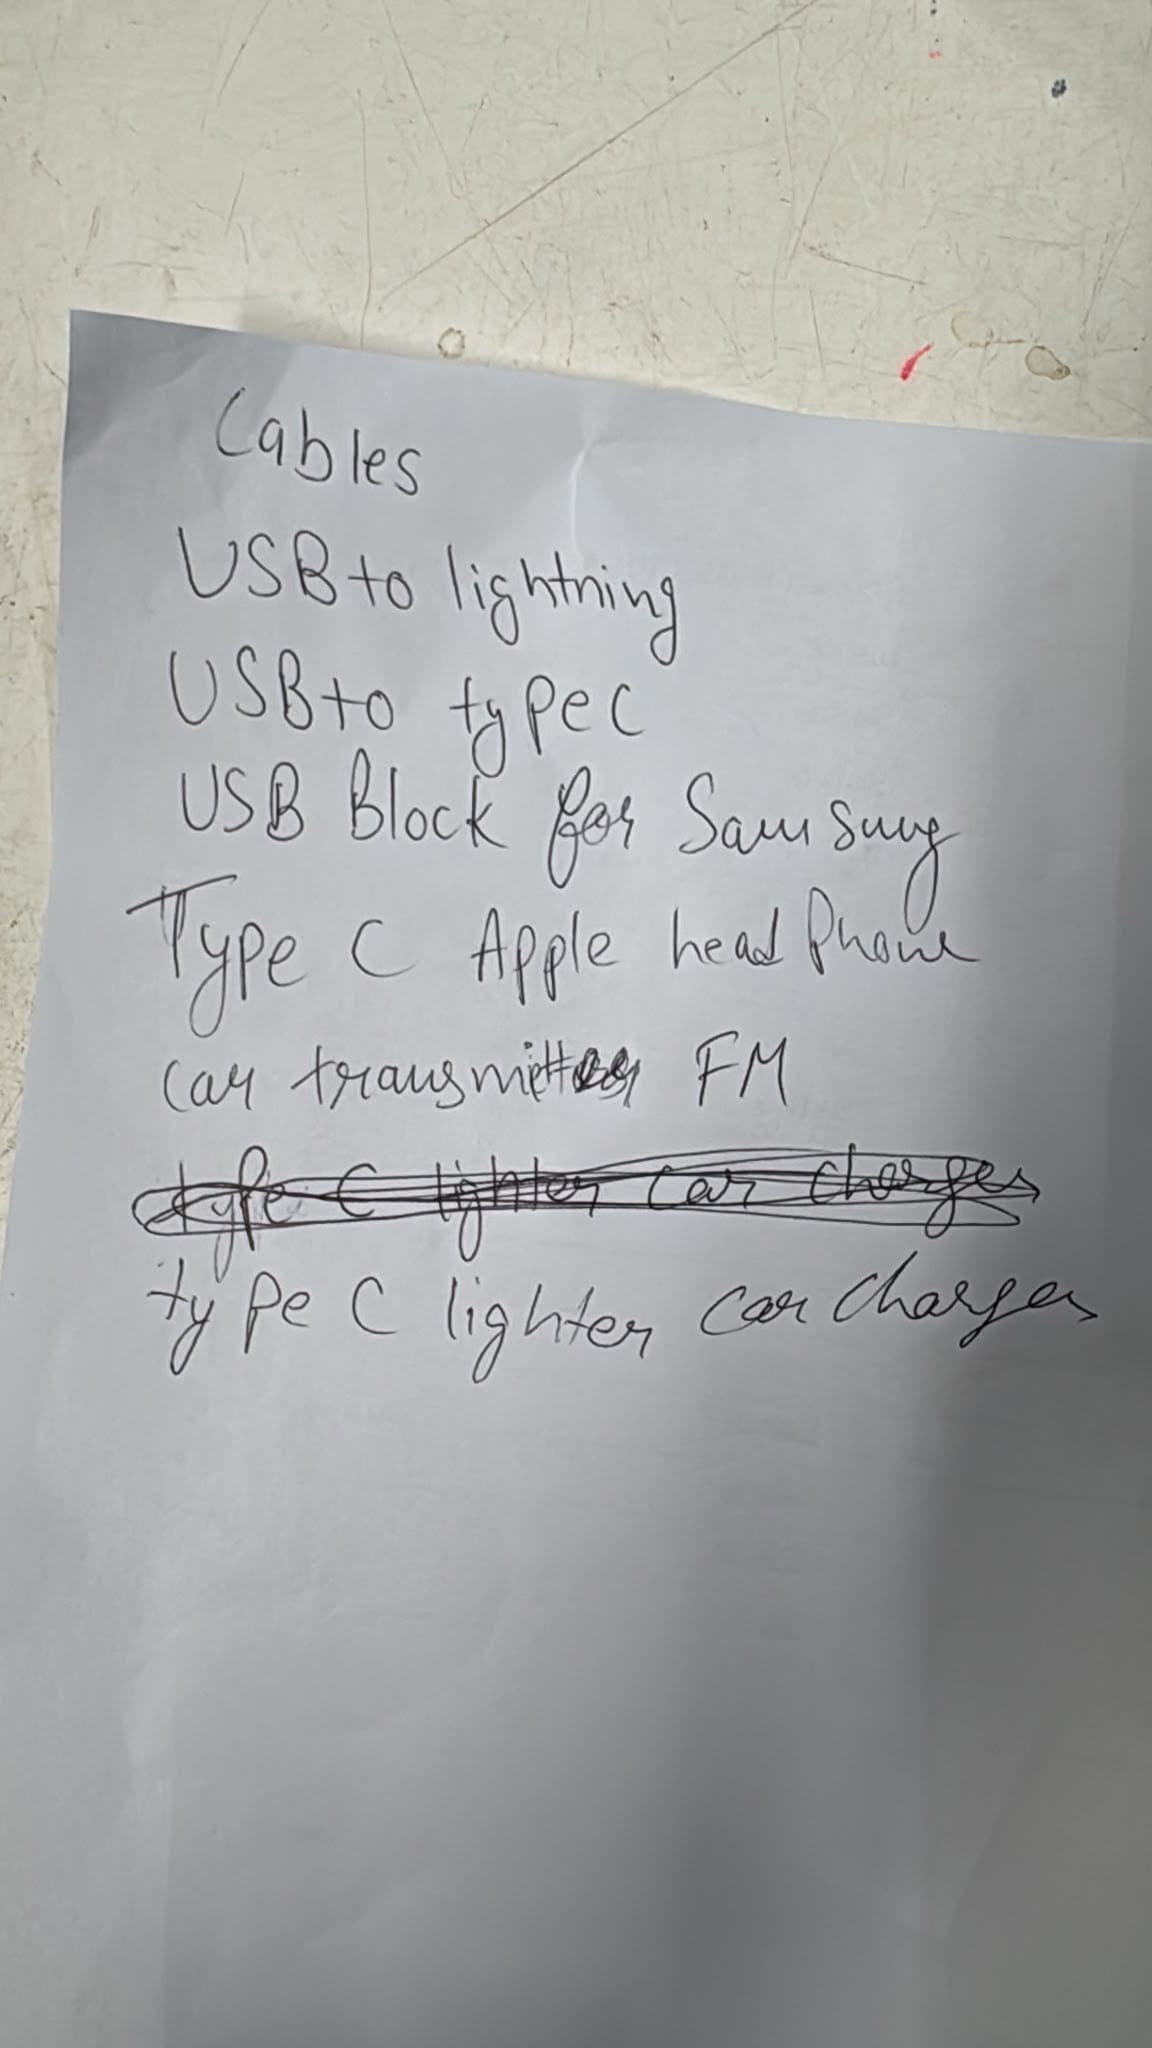 Cables
USB to lightning
USB to type C
USB Block for Samsung
Type C Apple head Phone
car transmitter FM
type C lighter car charger
type C lighter car charger